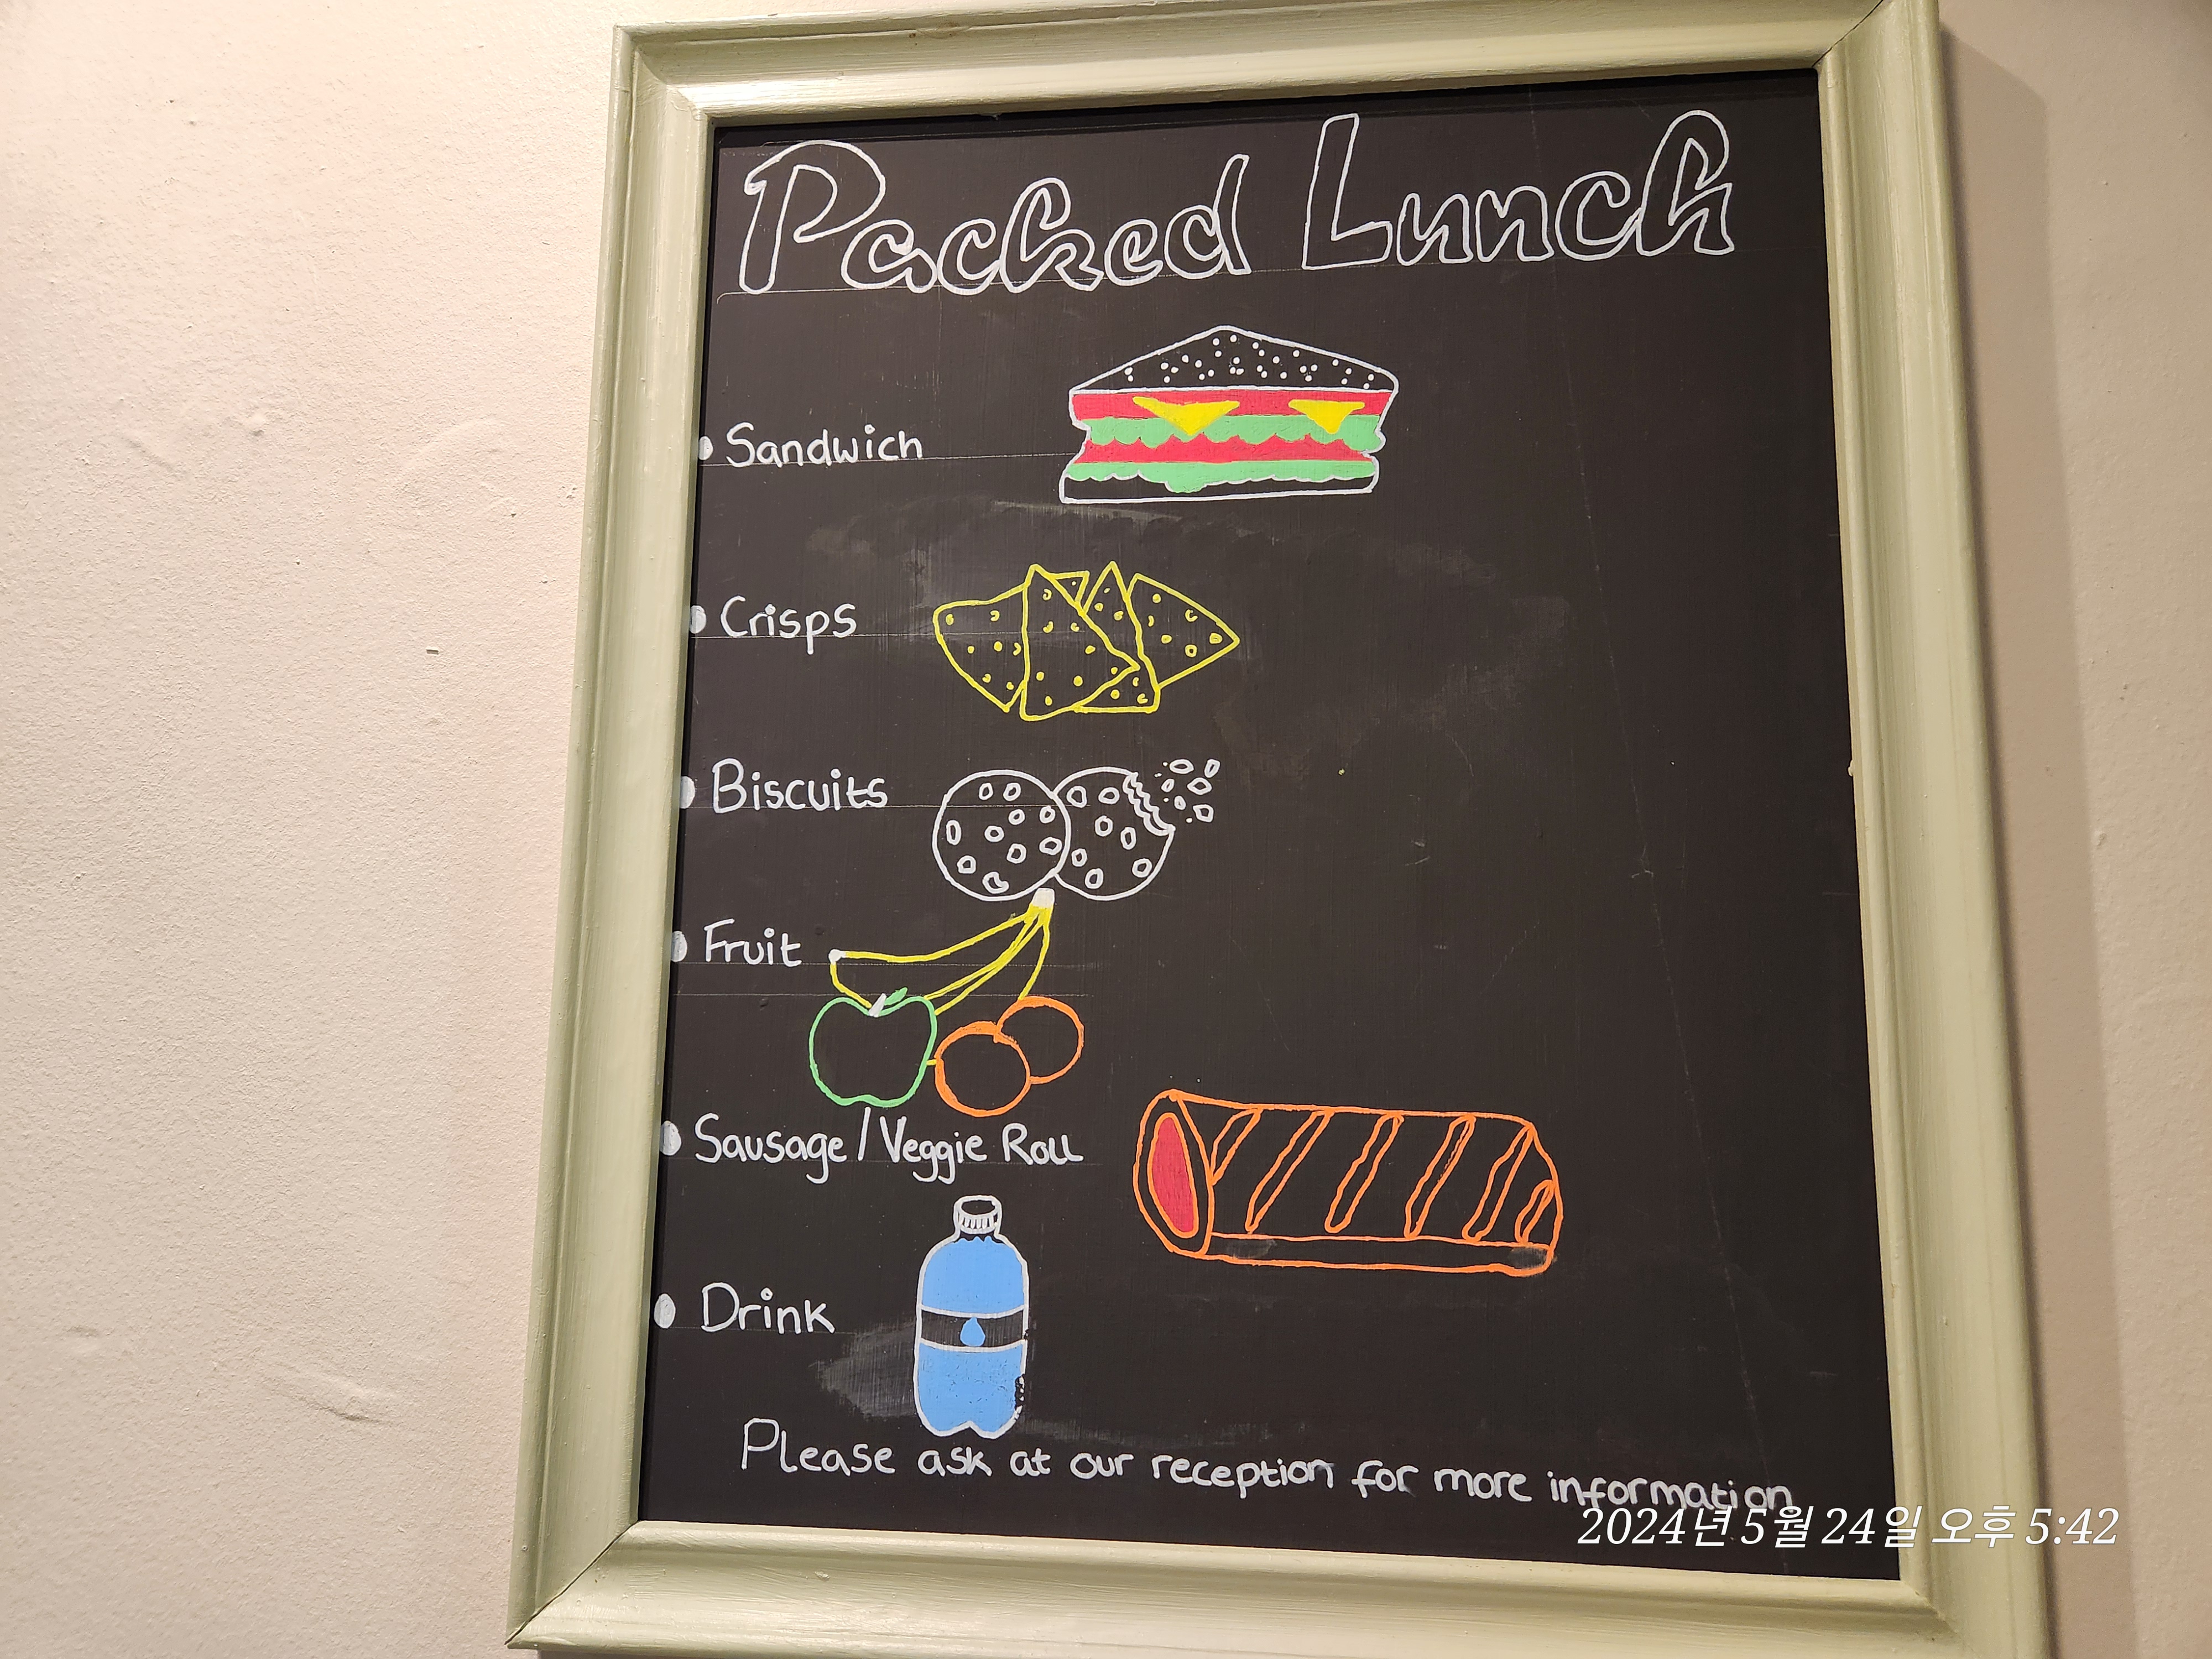 Packed Lunch
Sandwich
Crisps
Biscuits
Fruit
Sausage / Veggie Roll
Drink
Please ask at our reception for more information
2024년 5월 24일 오후 5:42